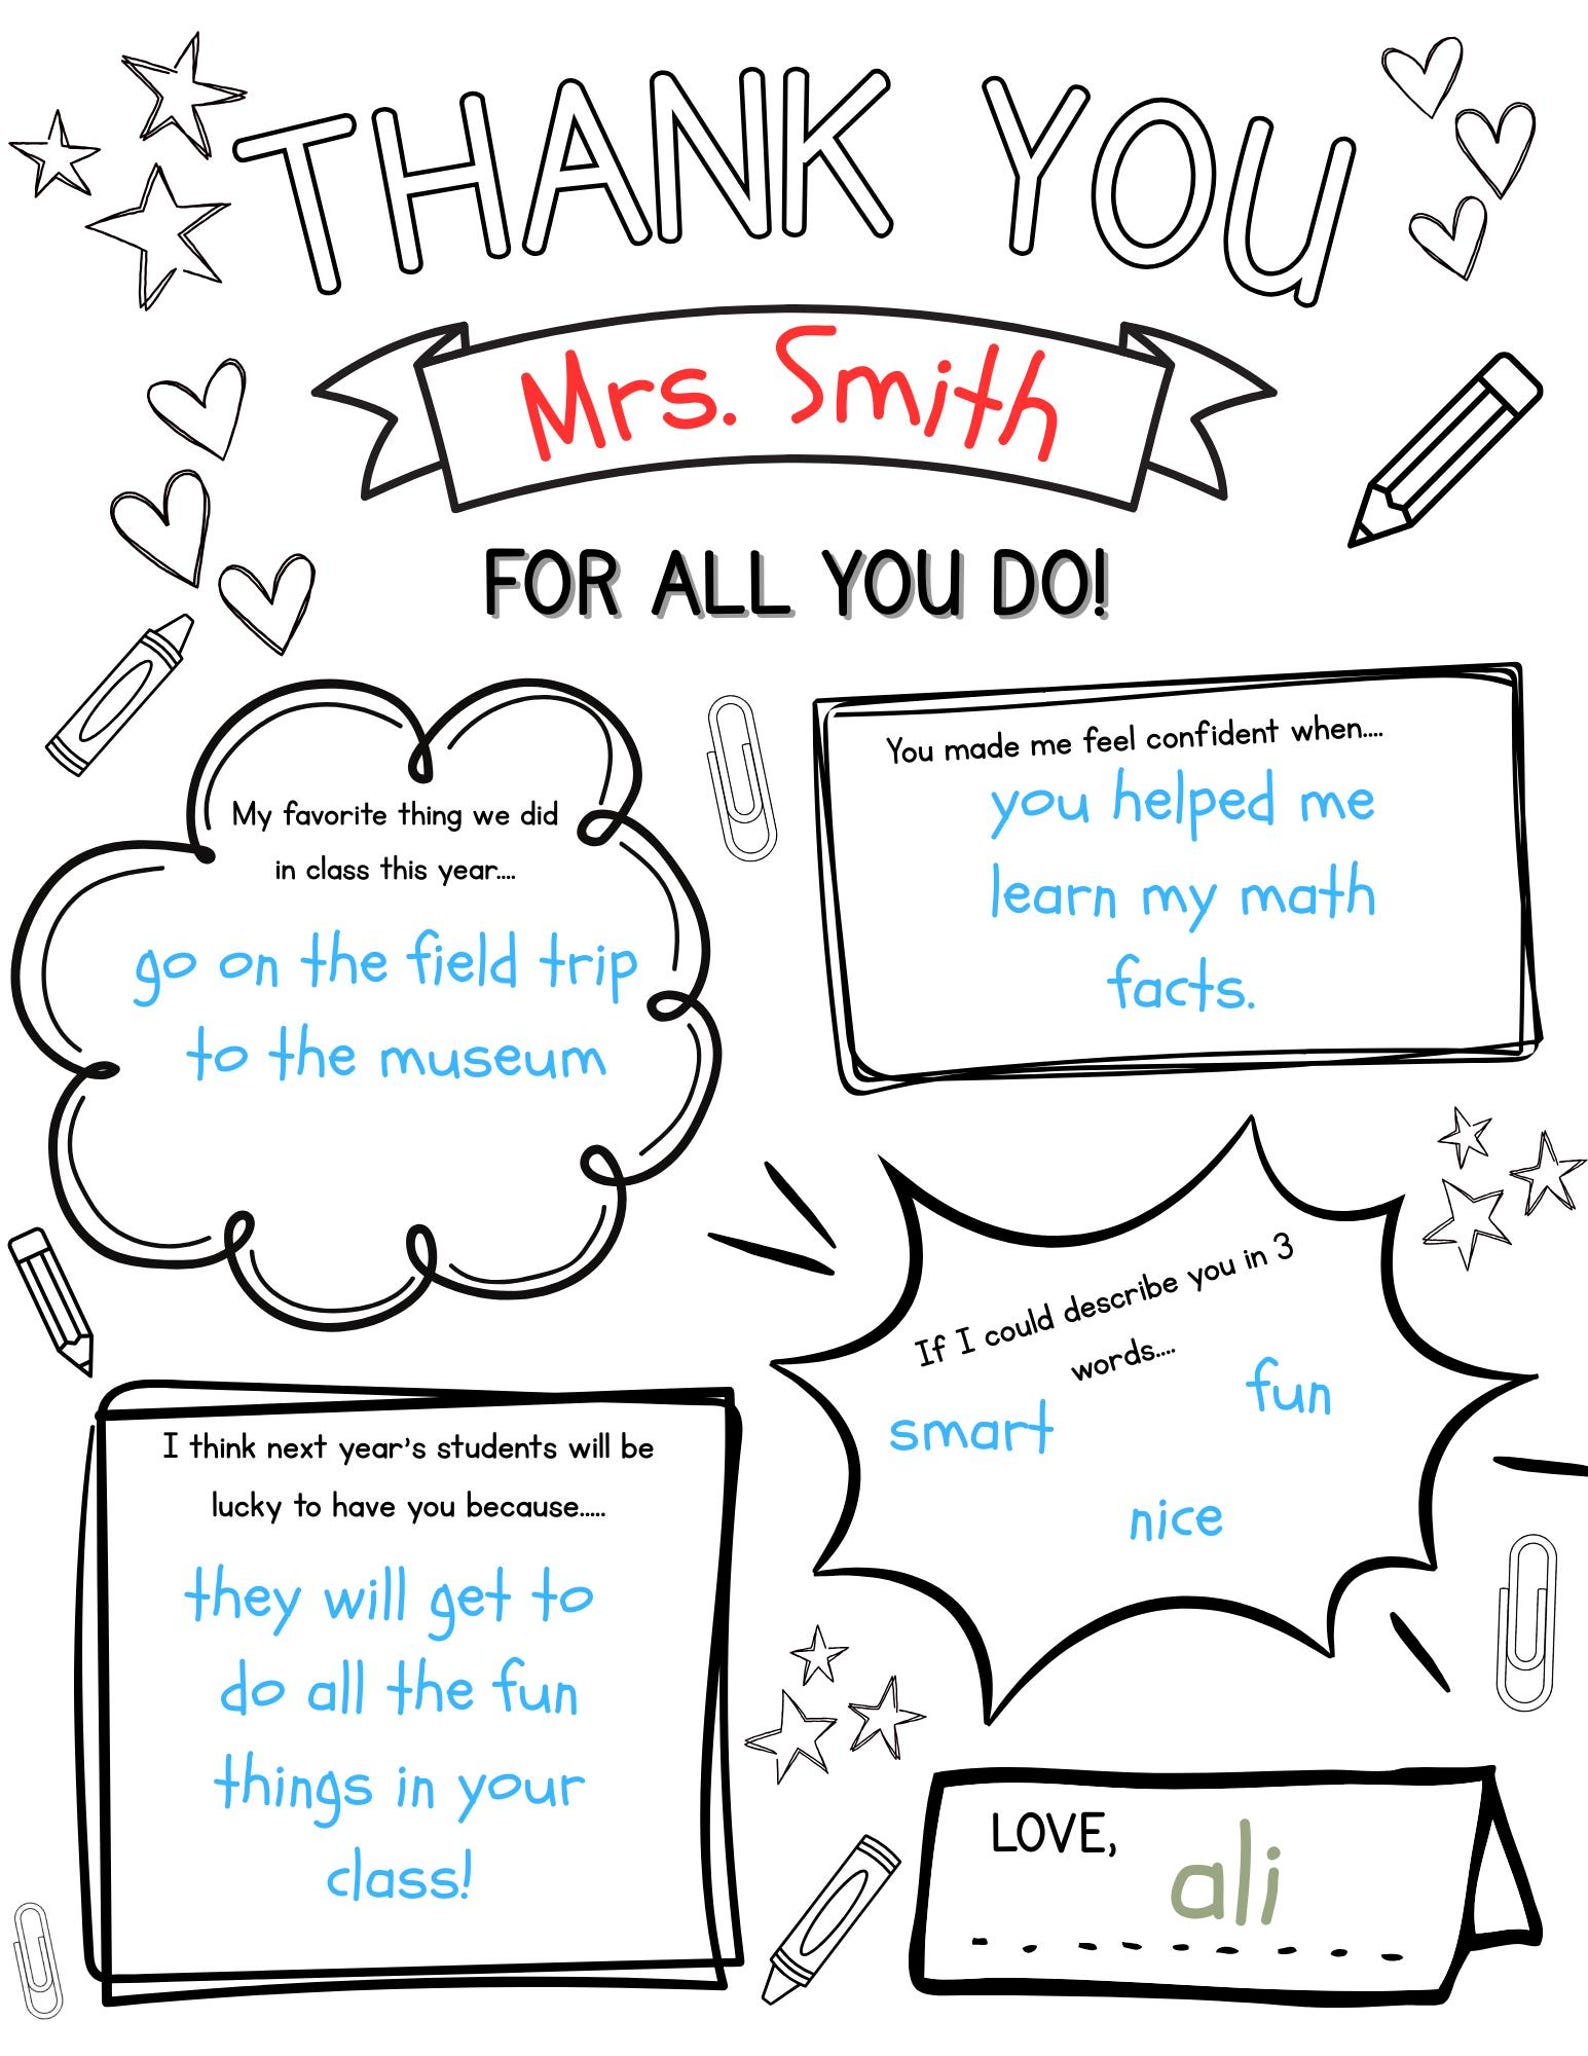 THANK YOU
Mrs. Smith
FOR ALL YOU DO!
My favorite thing we did
in class this year....
go on the field trip
to the museum
You made me feel confident when....
you helped me
learn my math
facts.
If I could describe you in 3
words....
fun
smart
nice
I think next year's students will be
lucky to have you because.....
they will get to
do all the fun
things in your
class!
LOVE,
ali